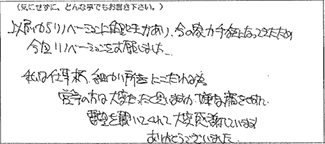 (気にせずに、どんな事でもお書き下さい。)
以前からリノベーションに興味があり、今の家が手狭になってきたため
今回リノベーションをお願いしました。
私は仕事柄、細かい所までこだわる為、
営の方は大変だったと思いますが
要望を聞いてくれて大変感謝しています
ありがとうございました。